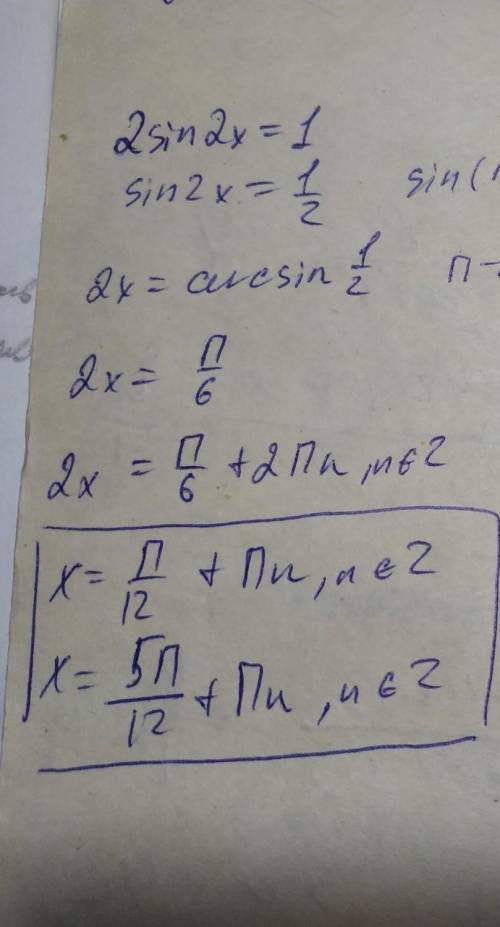 2sin2x = 1
sin2x = 1/2 sin(
2x = arcsin 1/2 П -
2x = П/6
2x = П/6 + 2Пn, n ∈ Z
x = П/12 + Пn, n ∈ Z
x = 5П/12 + Пn, n ∈ Z